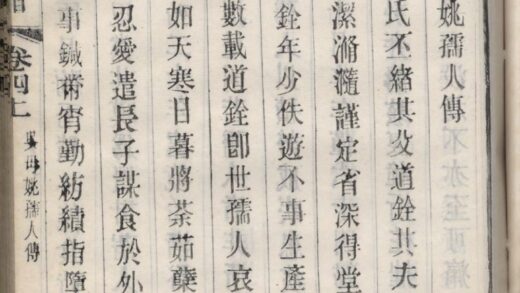 姚孺人傳
氏丕緒其父道銓其夫
潔滫瀡謹定省深得堂
銓年少佚遊不事生產
數載道銓卽世孺人哀
如天寒日暮將荼茹糵
忍愛遣長子謀食於外
事鍼術宵勤紡績指墮
卷四上
母姚孺人傳